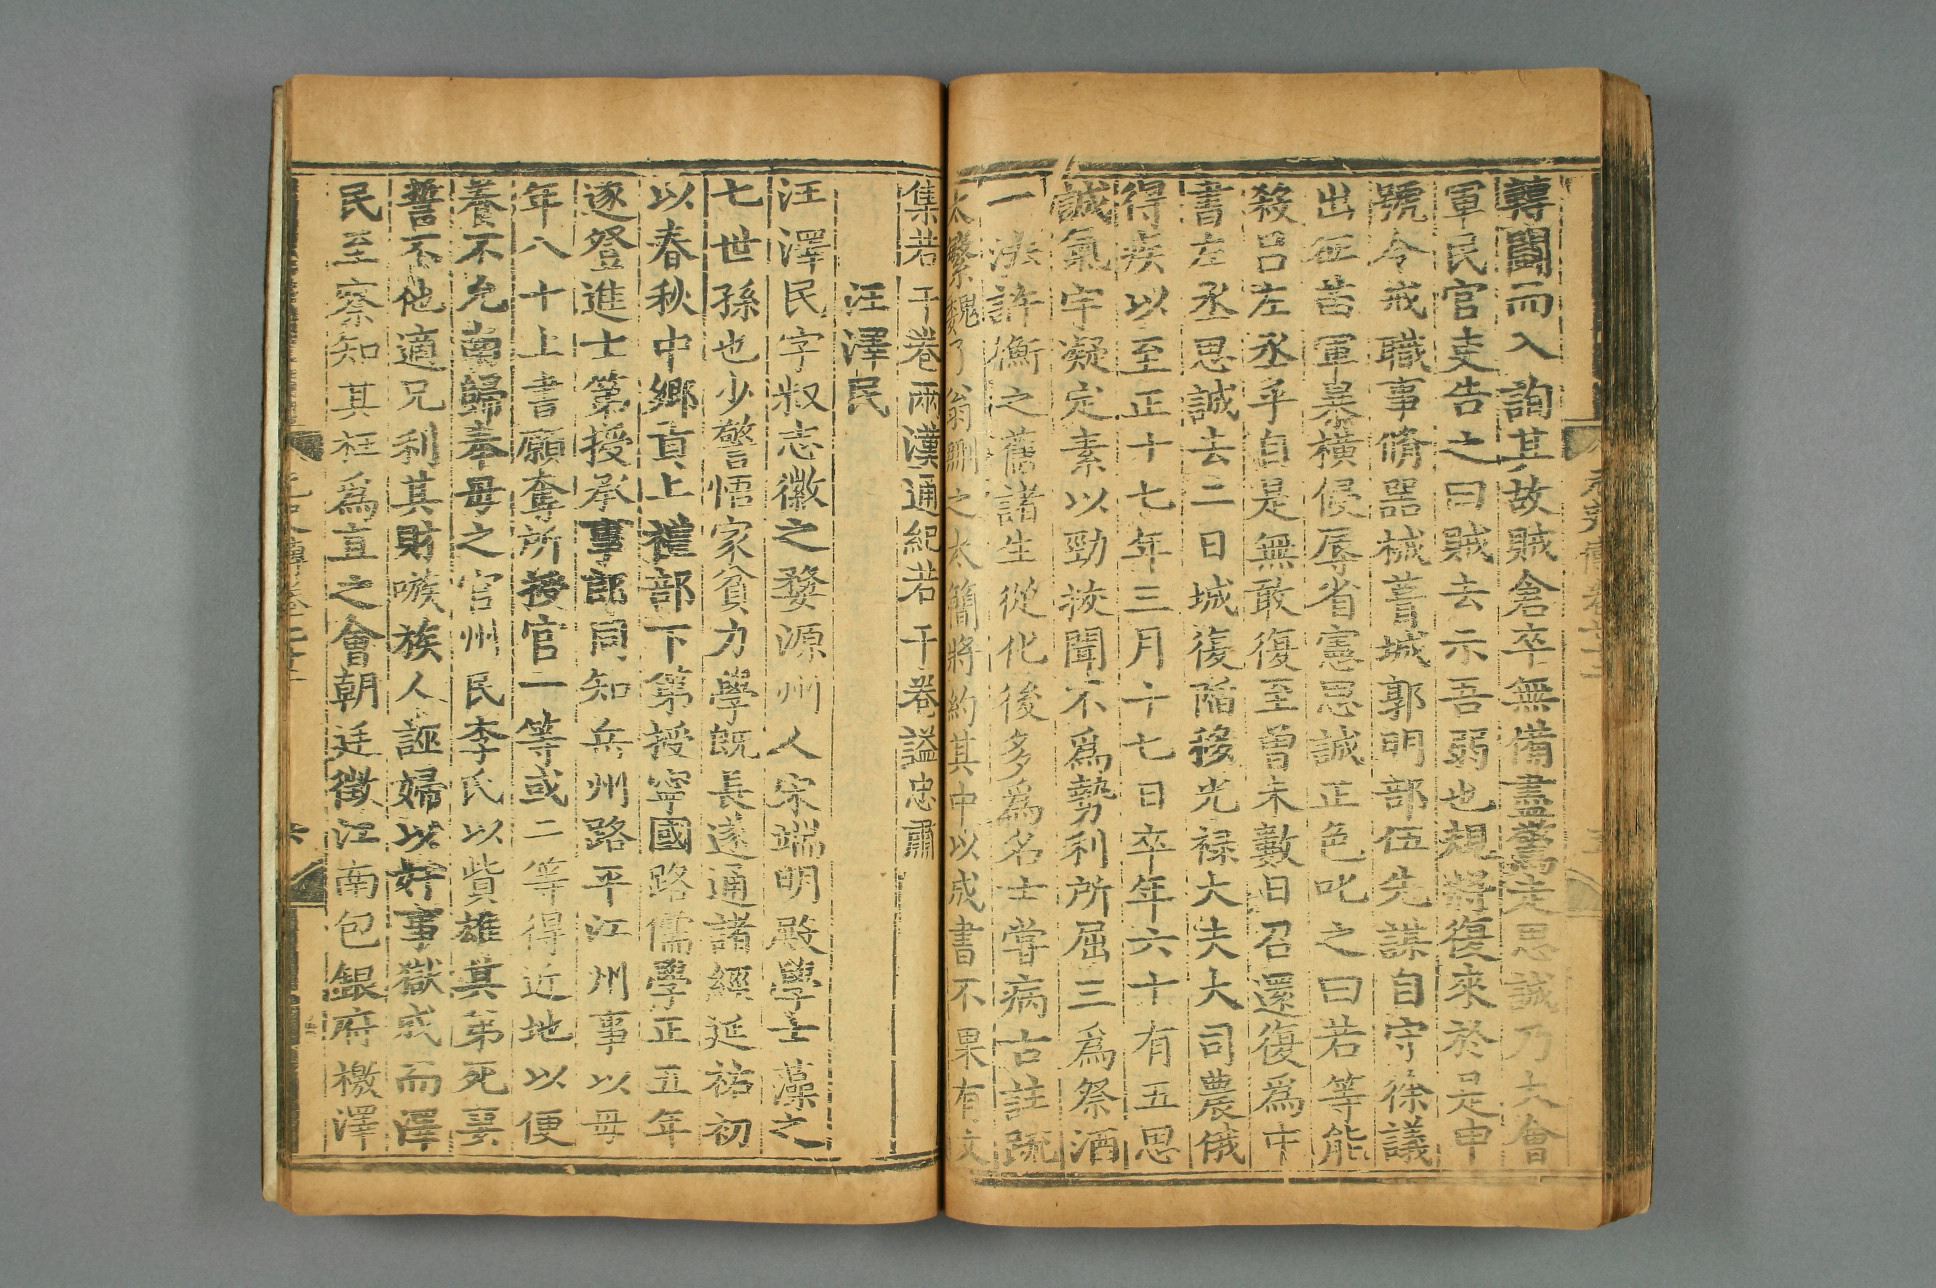 轉鬭而入詢其故賊倉卒無備盡驚走思誠乃大會
軍民官吏告之曰賊去示吾弱也規將復來於是申
號令戒職事脩噐械葺城郭明部伍先謀自守徐議
出征苦軍暴橫侵辱省憲思誠正色叱之曰若等能
殺呂左丞乎自是無敢復至曾未數日召還復爲中
書左丞思誠去二日城復陷移光祿大夫大司農俄
得疾以至正十七年三月十七日卒年六十有五思
誠氣宇凝定素以勁拔聞不爲勢利所屈三爲祭酒
一法許衡之舊諸生從化後多爲名士嘗病古註疏
太繁魏了翁刪之太簡將約其中以成書不果有文
集若干卷兩漢通紀若干卷謚忠肅
汪澤民
汪澤民字叔志徽之婺源州人宋端明殿學士藻之
七世孫也少警悟家貧力學旣長遂通諸經延祐初
以春秋中鄉貢上禮部下第授寧國路儒學正五年
遂登進士第授承事郎同知岳州路平江州事以母
年八十上書願奪所授官一等或二等得近地以便
養不允南歸奉母之官州民李氏以貲雄其弟死妻
誓不他適兄利其財嗾族人誣婦以奸事獄成而澤
民至察知其枉爲直之會朝廷徵江南包銀府檄澤
六